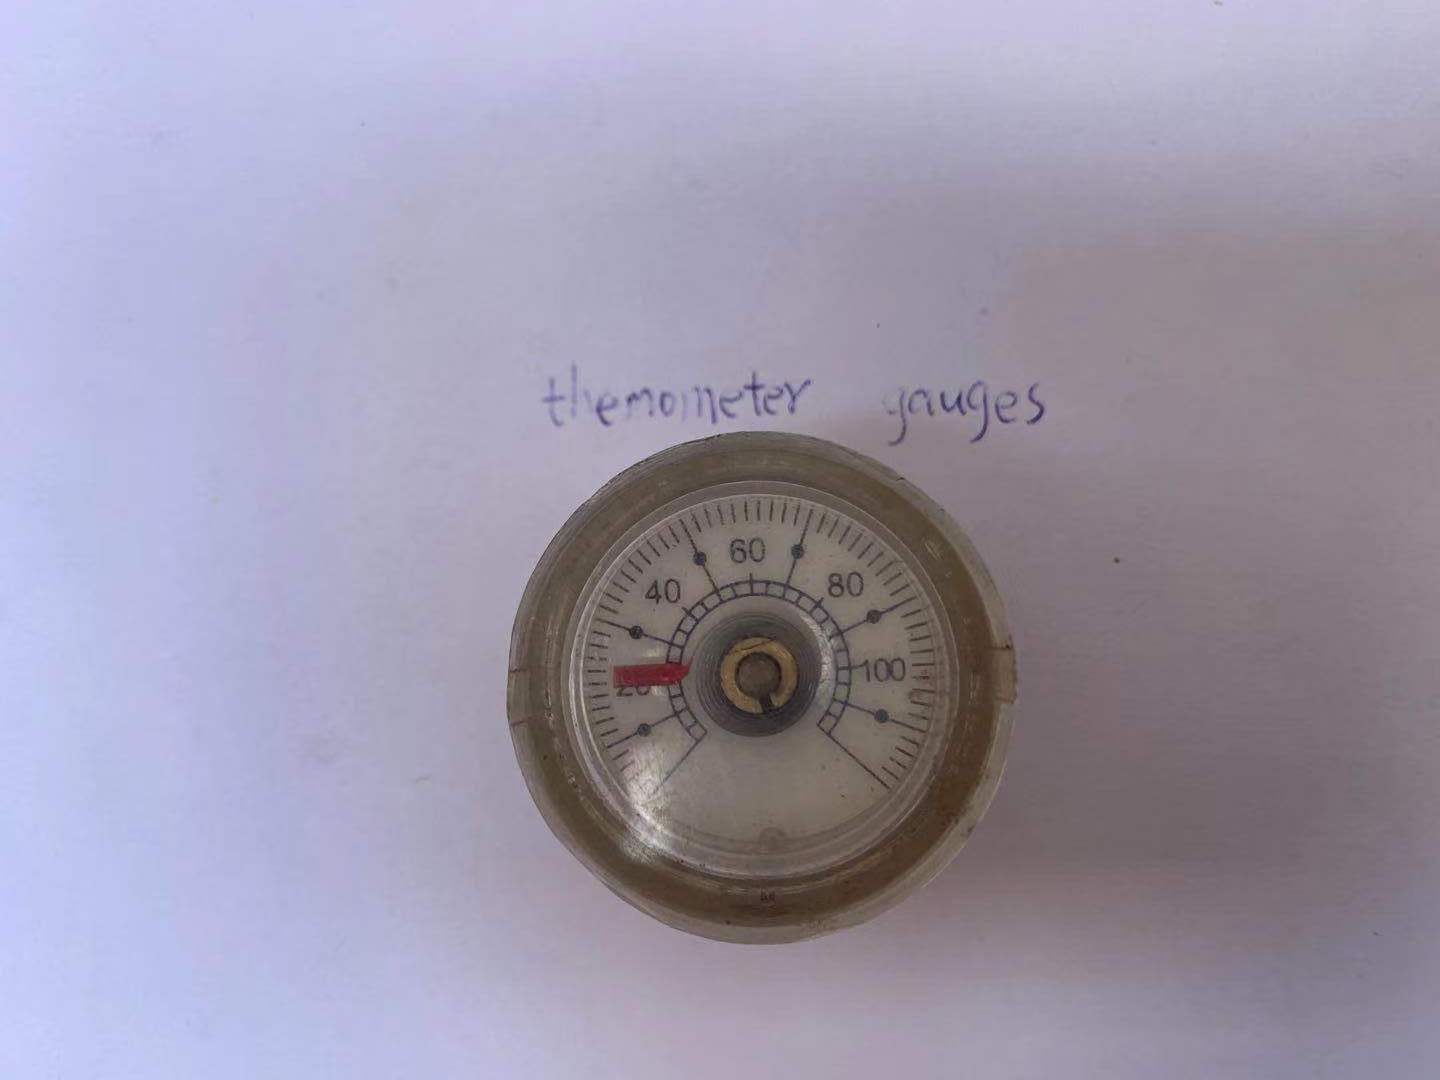 themometer gauges
60
40 80
20 100